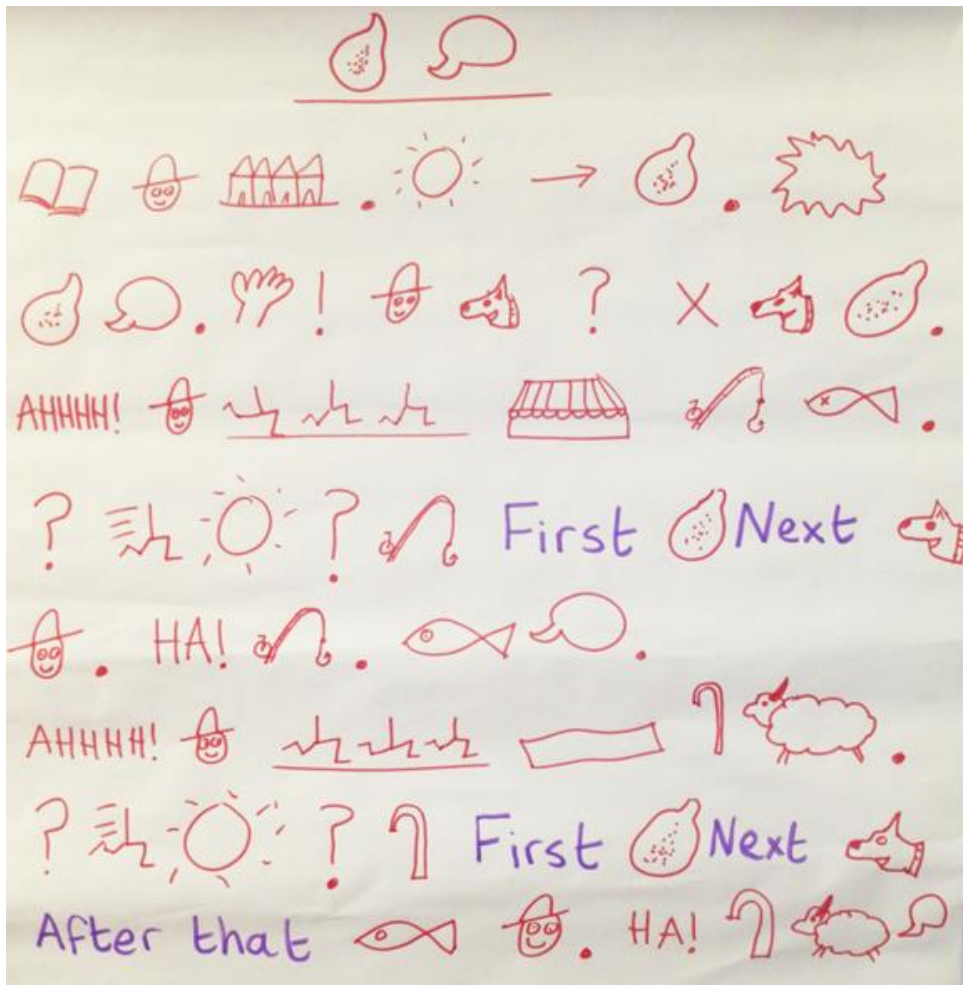 !
?
X
AHHHH!
? ? First Next
HA!
AHHHH!
? ? First Next
After that HA!